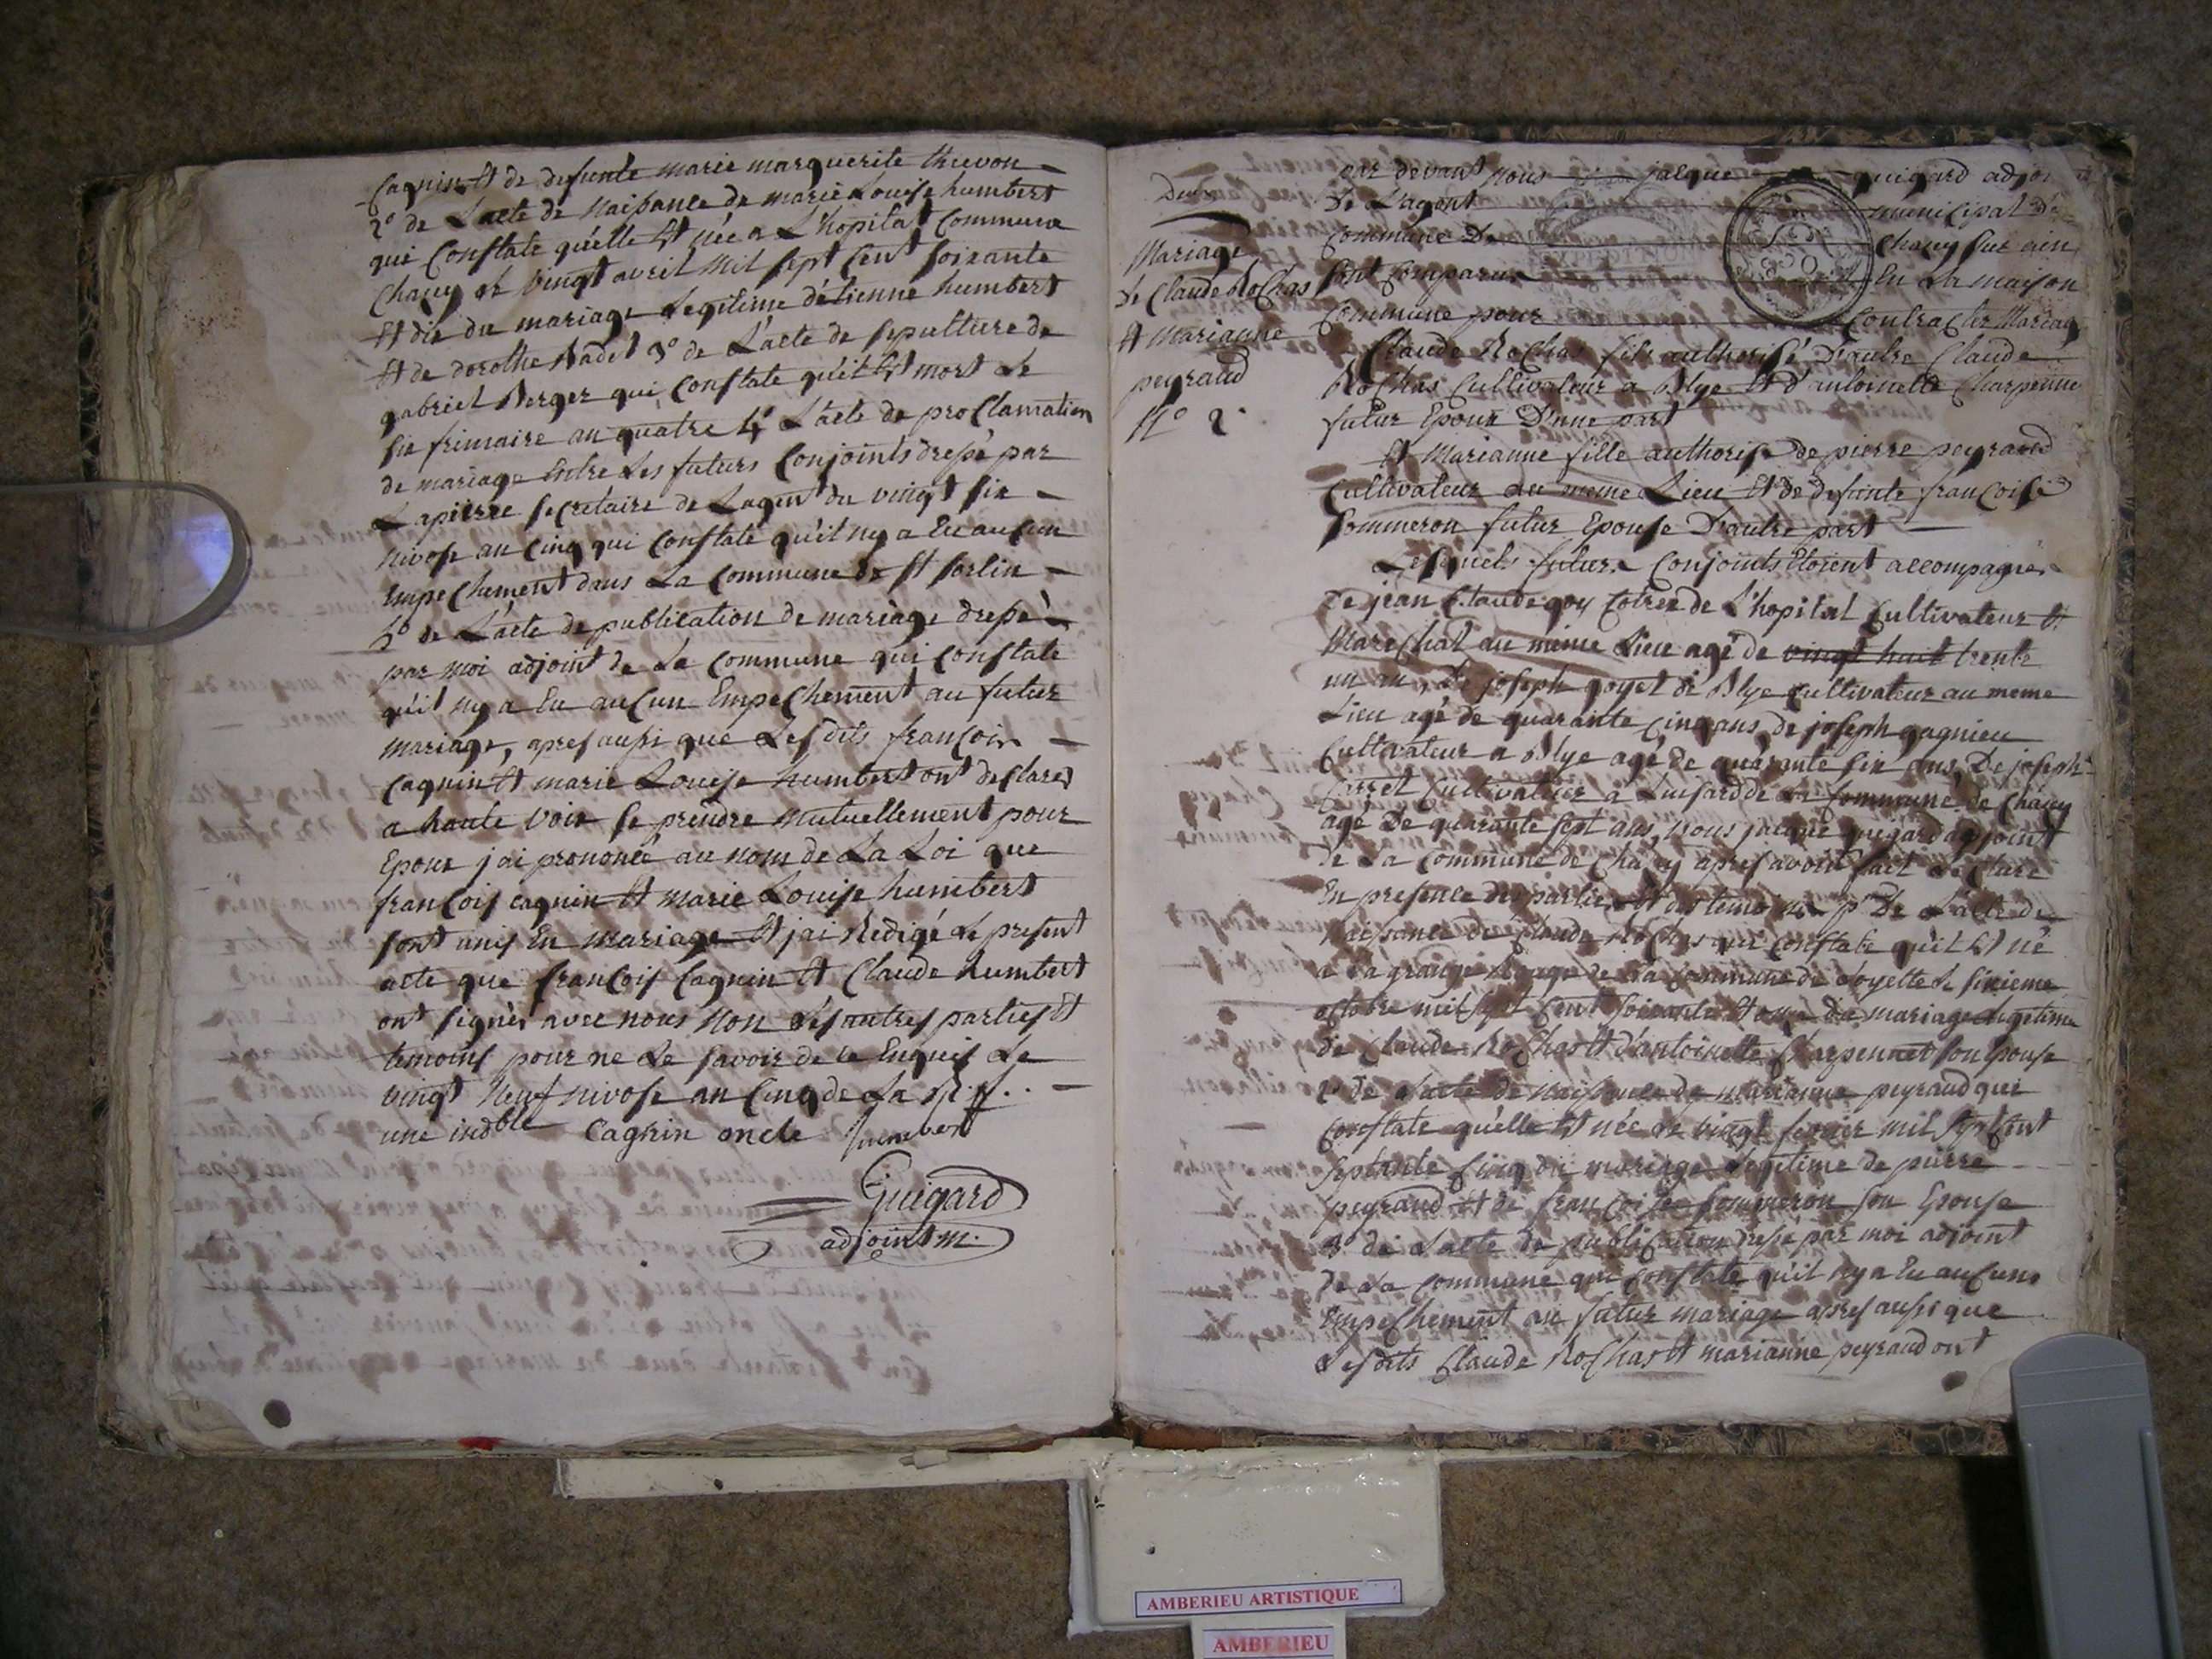 Cagnin Et de defunte marie marguerite thievon
2° de L'acte de naissance de marie Louise humbert
qui Constate qu'elle Est née a L'hopital Commune
Chazey le vingt avril Mil sept Cent soixante
Et dix du mariage Legitime d'étienne humbert
Et de dorothe 3° de L'acte de sepulture de
gabriel Berger qui Constate qu'il Est mort le
six frimaire an quatre 4° L'acte de proClamation
de mariage Entre Les futurs Conjoints dressé par
Lapierre secretaire de Lagent du vingt six
nivose an Cinq qui Constate qu'il ny a Eu auCun
EmpeChement dans La Commune de St sorlin
5° de L'acte de publication de mariage dressé
par moi adjoint de La Commune qui Constate
qu'il ny a Eu auCun EmpeChement au futur
mariage, apres aussi que Lesdits françois
Cagnin Et marie Louise humbert ont deClarer
a haute voix se prendre mutuellement pour
Epoux j'ai prononcé au nom de La Loi que
françois cagnin Et marie Louise humbert
sont unis En mariage Et j'ai Redigé le present
acte que françois Cagnin Et Claude humbert
ont signés avec nous non Les autres parties Et
temoins pour ne Le savoir de ce Enquis Le
vingt neuf nivose an Cinq de La
une indble Cagnin oncle humbert
Guigard
adjoint m.
Du
Mariage
de Claude RoChas
Et Marianne
peyraud
N° 2.
par devant nous jacque guigard adjoint
De L'agent municipal de
Commune De Chazey sur ain
sont Comparus En La maison
Commune pour ContraCter Mariage
Claude RoChas fils authorisé D'autre Claude
RoChas Cultivateur a Blye Et d'antoinette Charpenne
futur Epoux D'une part
Et Marianne fille authorise de pierre peyraud
Cultivateur au meme Lieu Et de defunte françoise
sommeron futur Epouse D'autre part
Lesquels futurs Conjoints Etoient accompagnés
De jean Claude goy de L'hopital Cultivateur Et
MareChal au même Lieu agé de vingt huit trente
un an, De joseph goyet de Blye Cultivateur au meme
Lieu agé de quarante Cinq ans, de joseph gagnieu
Cultivateur a Blye agé de quarante six ans, De joseph
Carret Cultivateur à Luisard de La Commune de Chazey
agé De quarante sept ans, nous jacque guigard adjoint
de La Commune de Chazey apres avoir fait
En presence des parties Et des temoins pr De L'acte de
naissance de Claude RoChas qui Constate qu'il Est né
a La grange de La Commune de Loyette Le sixieme
octobre mil sept Cent soixante Et onze du mariage Legitime
de Claude RoChas Et d'antoinette Charpennet son Epouse
2° de L'acte de naissance de marianne peyraud qui
Constate qu'elle Est née Le vingt fevrier mil sept Cent
septante Cinq du mariage Legitime de pierre
peyraud Et de françoise sommeron son Epouse
3° de L'acte de publiCation dressé par moi adjoint
De La Commune qui Constate qu'il ny a Eu auCuns
EmpeChement au futur mariage apres aussi que
Lesdits Claude RoChas Et marianne peyraud ont
AMBERIEU ARTISTIQUE
AMBERIEU